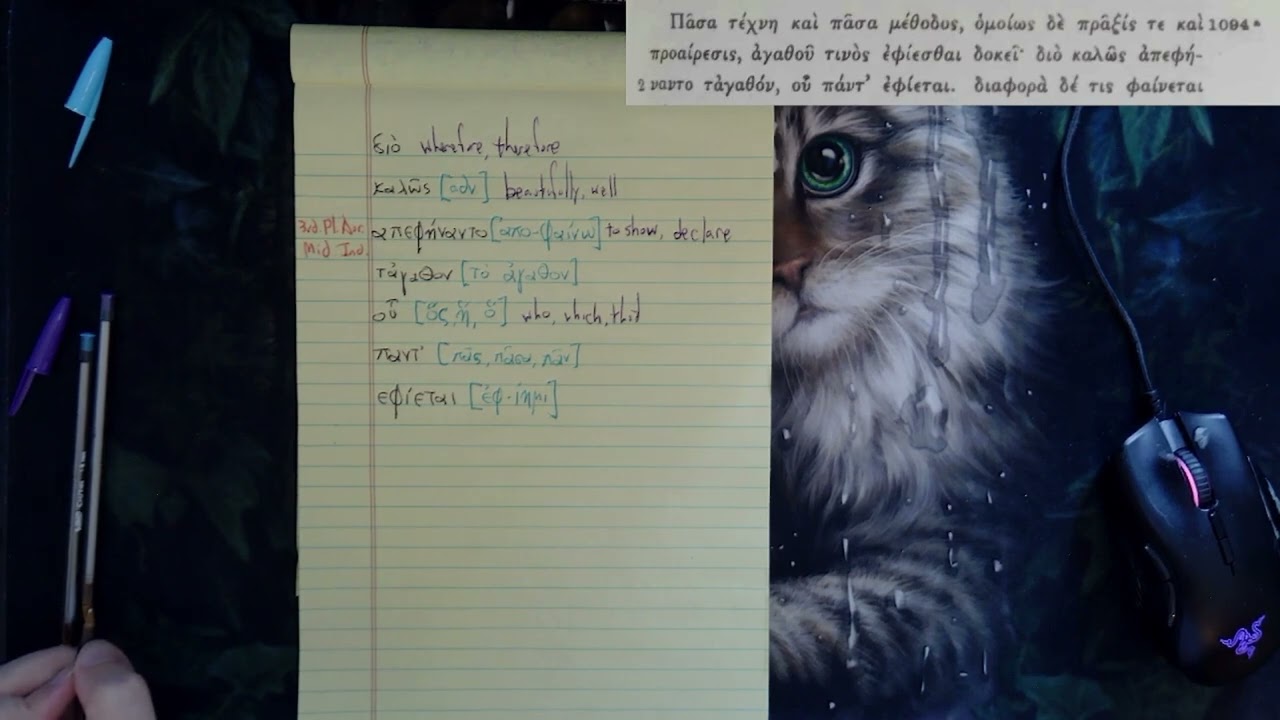 Πᾶσα τέχνη καὶ πᾶσα μέθοδος, ὁμοίως δὲ πρᾶξίς τε καὶ 1094ᵃ
προαίρεσις, ἀγαθοῦ τινὸς ἐφίεσθαι δοκεῖ· διὸ καλῶς ἀπεφή-
2 ναντο τἀγαθόν, οὗ πάντ' ἐφίεται. διαφορὰ δέ τις φαίνεται
διὸ wherefore, therefore
καλῶς [adv] beautifully, well
3rd. Pl. Aor. Mid Ind. απεφήναντο [ἀπο-φαίνω] to show, declare
τἀγαθον [τὸ ἀγαθον]
οὗ [ὅς, ἥ, ὅ] who, which, that
παντ' [πᾶς, πᾶσα, πᾶν]
εφίεται [ἐφ-ίημι]